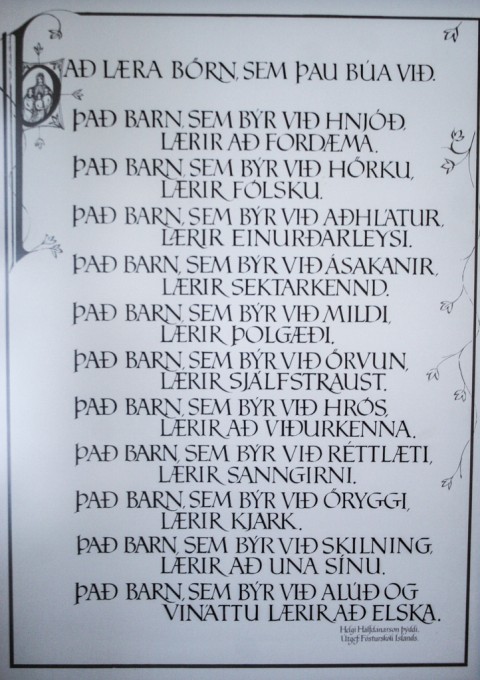 ÞAÐ LÆRA BÖRN, SEM ÞAU BÚA VIÐ.
ÞAÐ BARN, SEM BÝR VIÐ HNJÓÐ,
LÆRIR AÐ FORDÆMA.
ÞAÐ BARN, SEM BÝR VIÐ HÖRKU,
LÆRIR FÓLSKU.
ÞAÐ BARN, SEM BÝR VIÐ AÐHLÁTUR,
LÆRIR EINURÐARLEYSI.
ÞAÐ BARN, SEM BÝR VIÐ ÁSAKANIR,
LÆRIR SEKTARKENND.
ÞAÐ BARN, SEM BÝR VIÐ MILDI,
LÆRIR ÞOLGÆÐI.
ÞAÐ BARN, SEM BÝR VIÐ ÖRVUN,
LÆRIR SJÁLFSTRAUST.
ÞAÐ BARN, SEM BÝR VIÐ HRÓS,
LÆRIR AÐ VIÐURKENNA.
ÞAÐ BARN, SEM BÝR VIÐ RÉTTLÆTI,
LÆRIR SANNGIRNI.
ÞAÐ BARN, SEM BÝR VIÐ ÖRYGGI,
LÆRIR KJARK.
ÞAÐ BARN, SEM BÝR VIÐ SKILNING,
LÆRIR AÐ UNA SÍNU.
ÞAÐ BARN, SEM BÝR VIÐ ALÚÐ OG
VINÁTTU LÆRIR AÐ ELSKA.
Helgi Hálfdanarson þýddi.
Útgef. Fósturskóli Íslands.